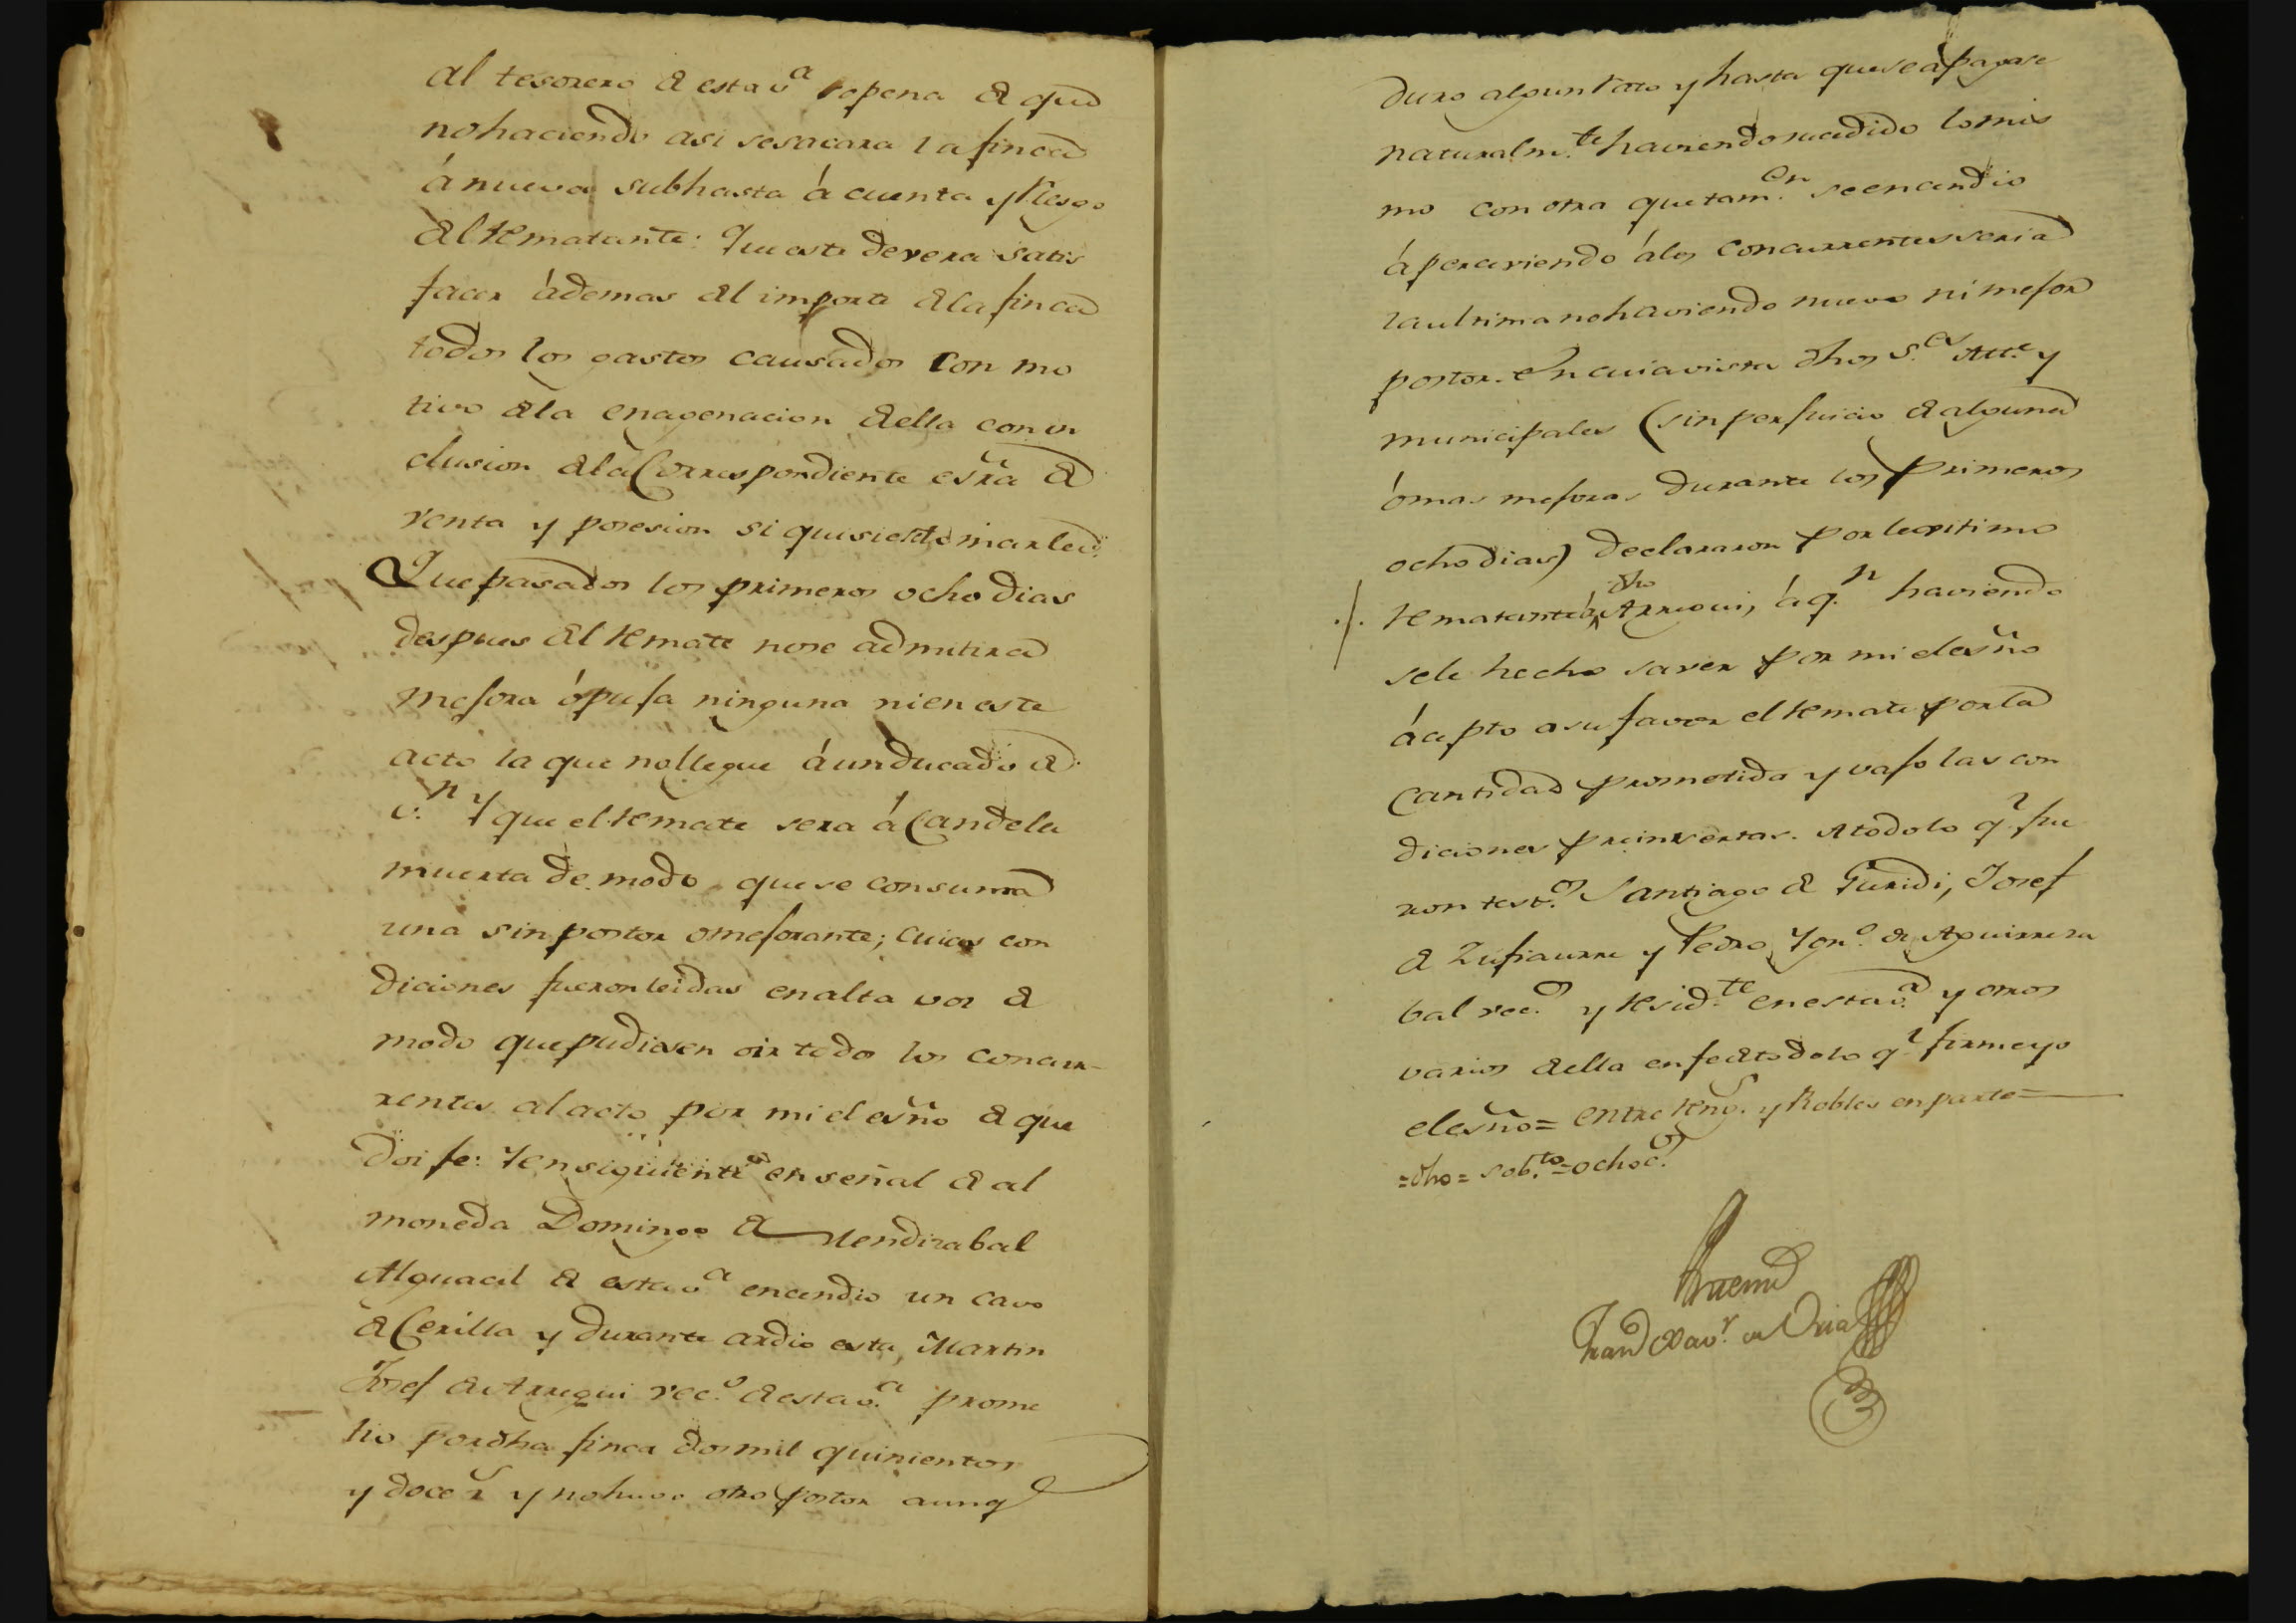 al tesorero de esta v.ª so pena de que
no haciendo asi se sacara la finca
á nueva subhasta á cuenta y Riesgo
del Rematante: Que este devera satis
facer ádemas del importe de la finca
todos los gastos causados con mo
tivo de la enagenacion de ella con in
clusion de la Correspondiente esrª de
venta y posesion si quisiere tomarla:
Que pasados los primeros ocho dias
despues del Remate no se admitira
mejora ó puja ninguna ni en este
acto la que no llegue á un ducado de
v.n Y que el Remate sera á Candela
muerta de modo que se consuma
una sin postor o mejorante; cuias con
diciones fueron leidas en alta voz de
modo que pudiesen oir todos los concur-
rentes al acto por mi el esño de que
doi fe: Y en siguiente en señal de al
moneda Domingo de Mendizabal
Alguacil de esta v.ª encendio un cavo
de Cerilla y durante ardio esta, Martin
Josef de Arregui vec.º de esta v.ª prome
tio por dha finca dos mil quinientos
y doce r.s y no huvo otro postor aunq.e
duro algun rato y hasta que se ápagase
naturalm.te haviendo sucedido lo mis
mo con otra que tam.en se encendio
áperciviendo á los concurrentes seria
la ultima no haviendo nuevo ni mejor
postor. En cuia vista dhos S.es Alc.e y
municipales (sin perjuicio de alguna
ó mas mejoras durante los primeros
ocho dias) declararon por lexitimo
./. Rematante á dho Arregui, á q.n haviendo
sele hecho saver por mi el esño
ácepto a su favor el Remate por la
Cantidad prometida y vajo las con
diciones preinsertas. A todo lo q.e fue
ron test.os Santiago de Guridi, Josef
de Zufiaurre y Pedro Ygn.º de Aguirreza
bal vec.os y Resid.te en esta v.ª y otros
varios de ella en fe de todo lo q.e firme yo
el esño= entre Reng.s y Robles en parte=
=dho= sob.to=ocho c.os
Ante mi
Fran.co Xav.r de Oria